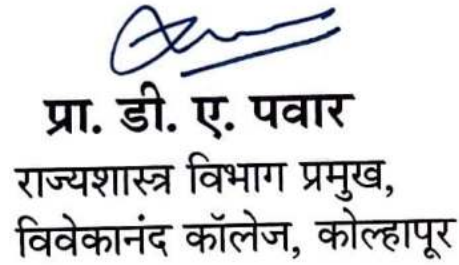 प्रा. डी. ए. पवार
राज्यशास्त्र विभाग प्रमुख,
विवेकानंद कॉलेज, कोल्हापूर